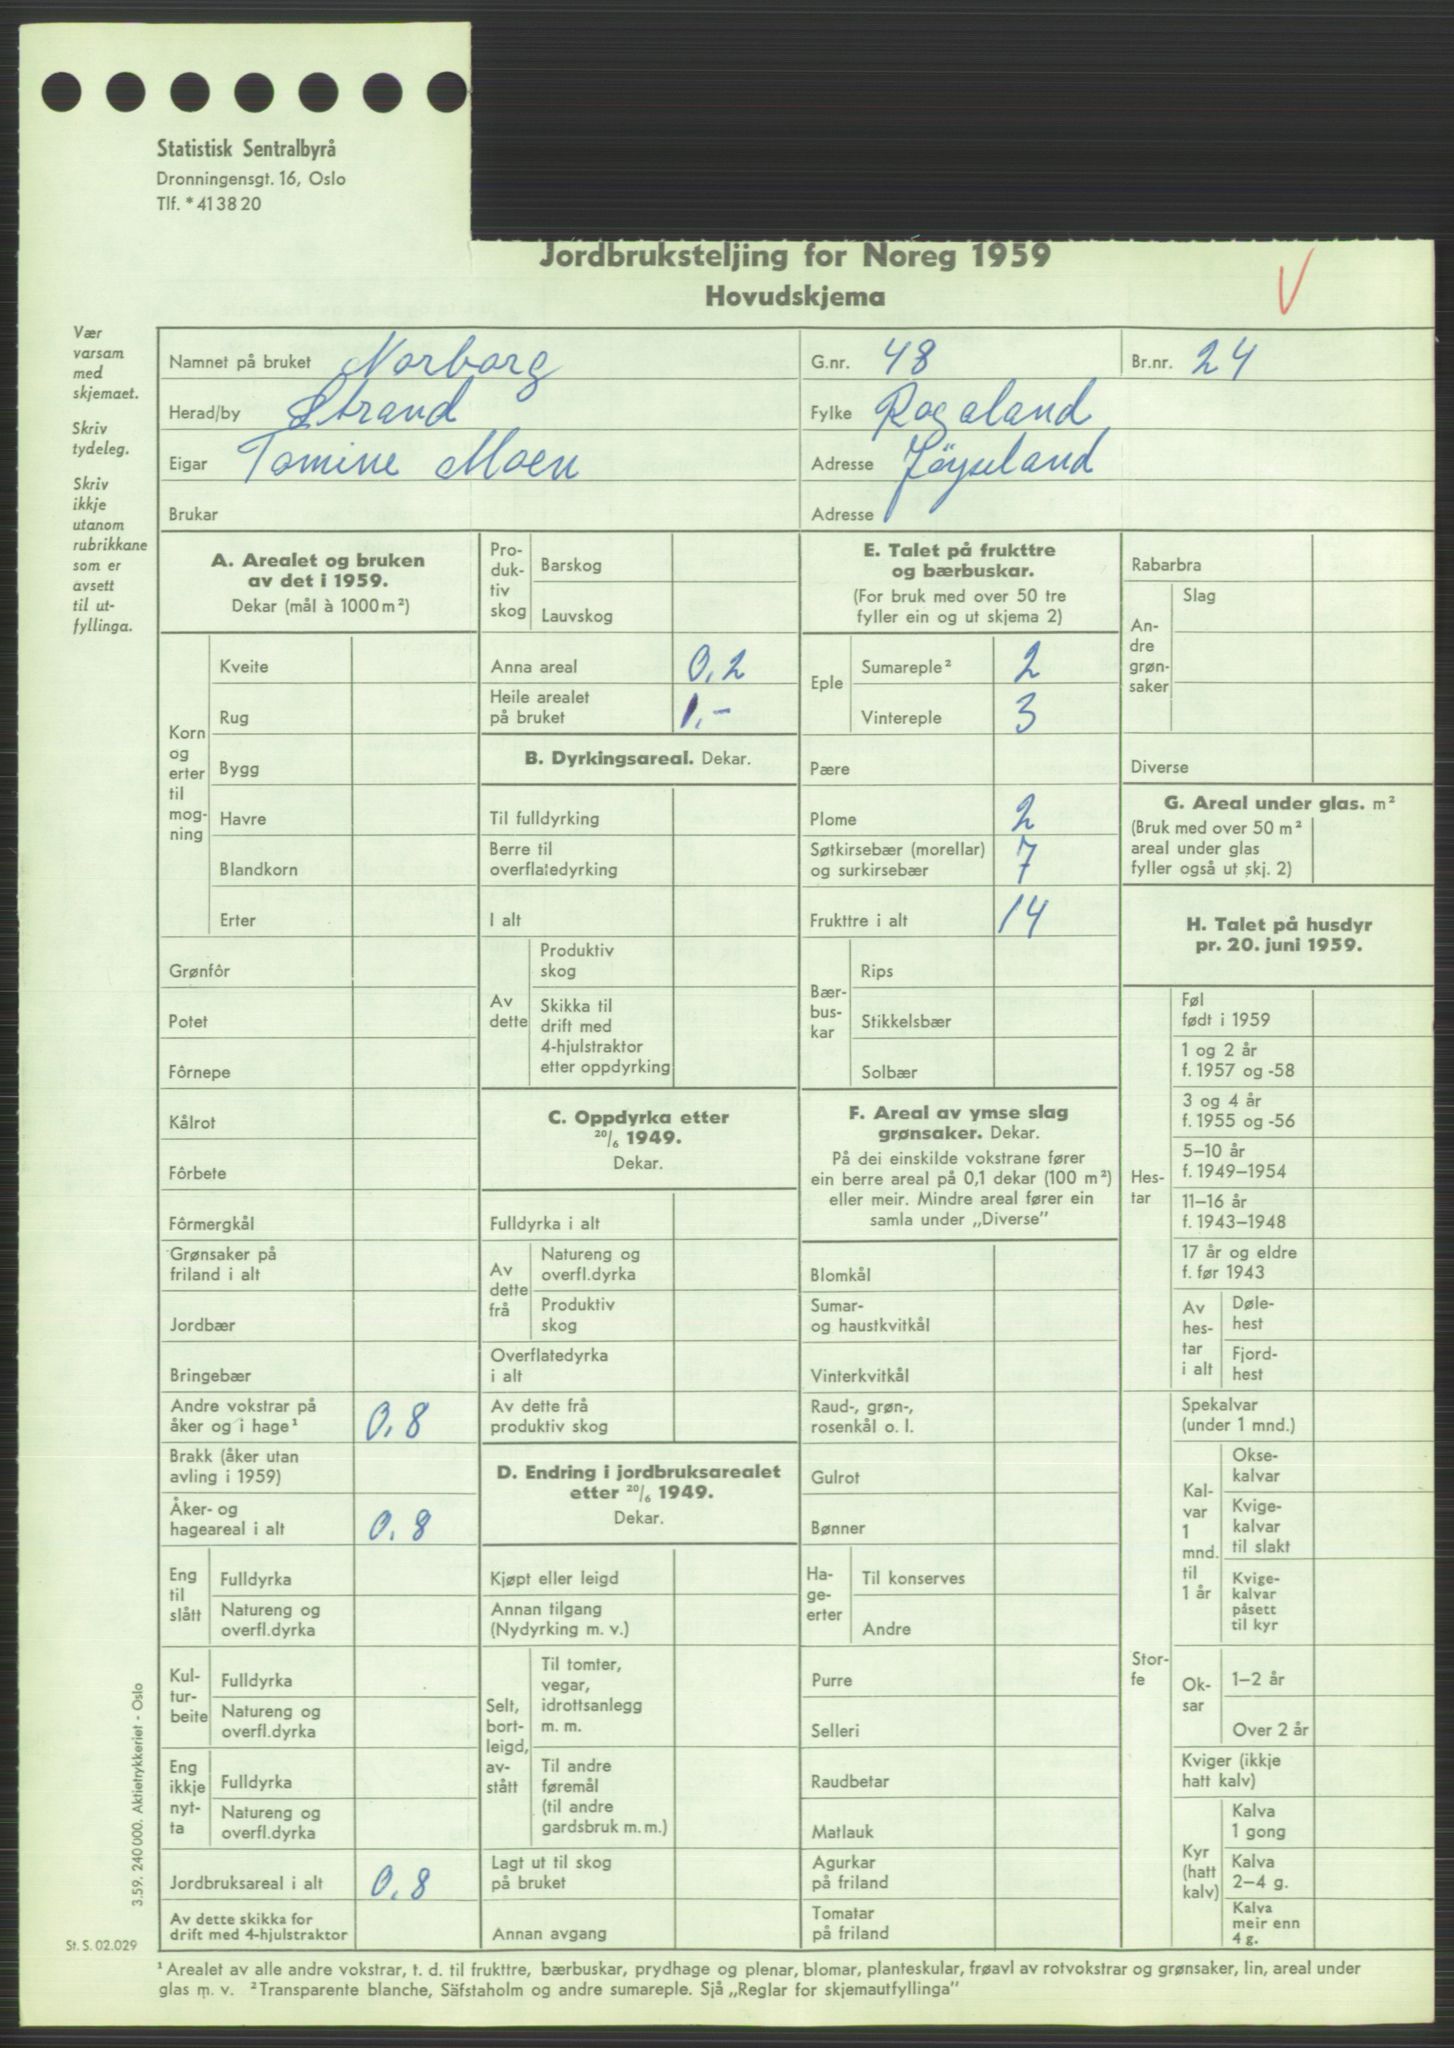 Statistisk Sentralbyrå
Dronningensgt. 16, Oslo
Tlf. * 41 38 20
Jordbruksteljing for Noreg 1959
Hovudskjema
V
Vær
varsam
med
skjemaet.
Skriv
tydeleg.
Skriv
ikkje
utanom
rubrikkane
som er
avsett
til ut-
fyllinga.
Namnet på bruket Norborg G.nr. 48 Br.nr. 24
Herad/by Strand Fylke Rogaland
Eigar Tomine Moen Adresse Jøyseland
Brukar Adresse
A. Arealet og bruken
av det i 1959.
Dekar (mål à 1000 m²)
Korn
og
erter
til
mog-
ning
Kveite
Rug
Bygg
Havre
Blandkorn
Erter
Grønfôr
Potet
Fôrnepe
Kålrot
Fôrbete
Fôrmergkål
Grønsaker på
friland i alt
Jordbær
Bringebær
Andre vokstrar på
åker og i hage¹ 0,8
Brakk (åker utan
avling i 1959)
Åker- og
hageareal i alt 0,8
Eng
til
slått
Fulldyrka
Natureng og
overfl.dyrka
Kul-
tur-
beite
Fulldyrka
Natureng og
overfl.dyrka
Eng
ikkje
nyt-
ta
Fulldyrka
Natureng og
overfl.dyrka
Jordbruksareal i alt 0,8
Av dette skikka for
drift med 4-hjulstraktor
Pro-
duk-
tiv
skog
Barskog
Lauvskog
Anna areal 0,2
Heile arealet
på bruket 1,-
B. Dyrkingsareal. Dekar.
Til fulldyrking
Berre til
overflatedyrking
I alt
Av
dette
Produktiv
skog
Skikka til
drift med
4-hjulstraktor
etter oppdyrking
C. Oppdyrka etter
20/6 1949.
Dekar.
Fulldyrka i alt
Av
dette
frå
Natureng og
overfl.dyrka
Produktiv
skog
Overflatedyrka
i alt
Av dette frå
produktiv skog
D. Endring i jordbruksarealet
etter 20/6 1949.
Dekar.
Kjøpt eller leigd
Annan tilgang
(Nydyrking m. v.)
Selt,
bort-
leigd,
av-
stått
Til tomter,
vegar,
idrottsanlegg
m. m.
Til andre
føremål
(til andre
gardsbruk m. m.)
Lagt ut til skog
på bruket
Annan avgang
E. Talet på frukttre
og bærbuskar.
(For bruk med over 50 tre
fyller ein og ut skjema 2)
Eple
Sumareple² 2
Vintereple 3
Pære
Plome 2
Søtkirsebær (morellar)
og surkirsebær 7
Frukttre i alt 14
Bær-
bus-
kar
Rips
Stikkelsbær
Solbær
F. Areal av ymse slag
grønsaker. Dekar.
På dei einskilde vokstrane fører
ein berre areal på 0,1 dekar (100 m²)
eller meir. Mindre areal fører ein
samla under „Diverse”
Blomkål
Sumar-
og haustkvitkål
Vinterkvitkål
Raud-, grøn-,
rosenkål o. l.
Gulrot
Bønner
Ha-
ge-
erter
Til konserves
Andre
Purre
Selleri
Raudbetar
Matlauk
Agurkar
på friland
Tomatar
på friland
Rabarbra
An-
dre
grøn-
saker
Slag
Diverse
G. Areal under glas. m²
(Bruk med over 50 m²
areal under glas
fyller også ut skj. 2)
H. Talet på husdyr
pr. 20. juni 1959.
Hes-
tar
Føl
født i 1959
1 og 2 år
f. 1957 og -58
3 og 4 år
f. 1955 og -56
5–10 år
f. 1949–1954
11–16 år
f. 1943–1948
17 år og eldre
f. før 1943
Av
hes-
tar
i alt
Døle-
hest
Fjord-
hest
Stor-
fe
Spekalvar
(under 1 mnd.)
Kal-
var
1
mnd.
til
1 år
Okse-
kalvar
Kvige-
kalvar
til slakt
Kvige-
kalvar
påsett
til kyr
Ok-
sar
1–2 år
Over 2 år
Kviger (ikkje
hatt kalv)
Kyr
(hatt
kalv)
Kalva
1 gong
Kalva
2–4 g.
Kalva
meir enn
4 g.
3.59. 240 000. Aktietrykkeriet - Oslo
St. S. 02.029
¹ Arealet av alle andre vokstrar, t. d. til frukttre, bærbuskar, prydhage og plenar, blomar, planteskular, frøavl av rotvokstrar og grønsaker, lin, areal under
glas m. v. ² Transparente blanche, Säfstaholm og andre sumareple. Sjå „Reglar for skjemautfyllinga”